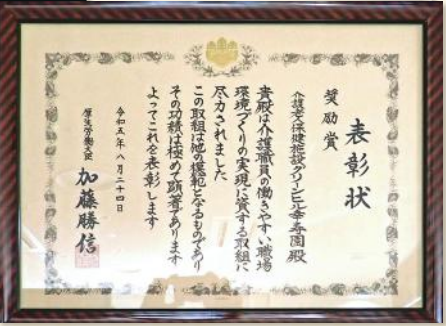 表彰状
奨励賞
介護老人保健施設グリーンヒル幸寿園 殿
貴殿は介護職員の働きやすい職場
環境づくりの実現に資する取組に
尽力されました
この取組は他の模範となるものであり
その功績は極めて顕著であります
よってこれを表彰します
令和五年八月二十四日
厚生労働大臣 加藤勝信